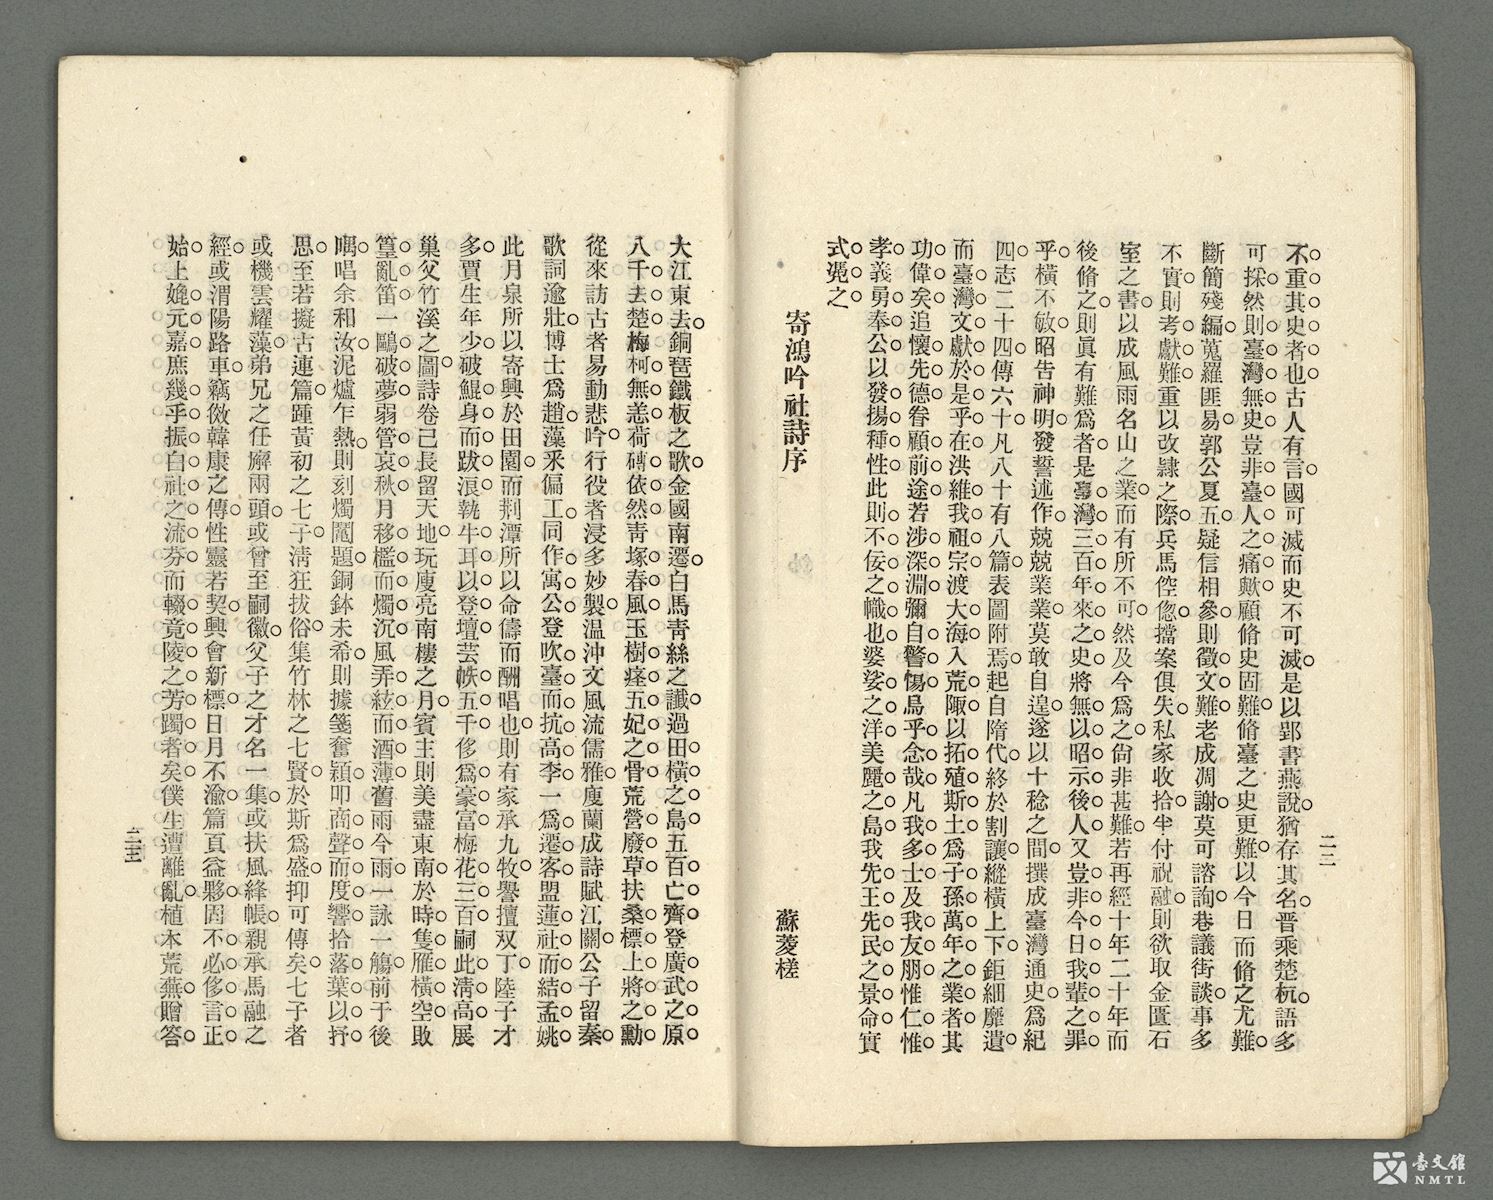 二二
不重其史者也古人有言國可滅而史不可滅是以郢書燕說猶存其名晋乘楚杌語多
可採然則臺灣無史豈非臺人之痛歟顧脩史固難脩臺之史更難以今日而脩之尤難
斷簡殘編蒐羅匪易郭公夏五疑信相參則徵文難老成凋謝莫可諮詢巷議街談事多
不實則考獻難重以改隷之際兵馬倥偬擋案俱失私家收拾半付祝融則欲取金匱石
室之書以成風雨名山之業而有所不可然及今爲之尙非甚難若再經十年二十年而
後脩之則眞有難爲者是臺灣三百年來之史將無以昭示後人又豈非今日我輩之罪
乎橫不敏昭告神明發誓述作兢兢業業莫敢自遑遂以十稔之間撰成臺灣通史爲紀
四志二十四傳六十凡八十有八篇表圖附焉起自隋代終於割讓縱橫上下鉅細靡遺
而臺灣文獻於是乎在洪維我祖宗渡大海入荒陬以拓殖斯土爲子孫萬年之業者其
功偉矣追懷先德眷顧前途若涉深淵彌自警惕烏乎念哉凡我多士及我友朋惟仁惟
孝義勇奉公以發揚種性此則不佞之幟也婆娑之洋美麗之島我先王先民之景命實
式凴之
寄鴻吟社詩序
蘇菱槎
大江東去銅琶鐵板之歌金國南遷白馬靑絲之讖過田橫之島五百亡齊登廣武之原
八千去楚梅柯無恙荷磚依然靑塚春風玉樹瘞五妃之骨荒營廢草扶桑標上將之勳
從來訪古者易動悲吟行役者浸多妙製溫沖文風流儒雅庾蘭成詩賦江關公子留秦
歌詞逾壯博士爲趙藻釆偏工同作寓公登吹臺而抗高李一爲遷客盟蓮社而結孟姚
此月泉所以寄興於田園而荆潭所以命儔而酬唱也則有家承九牧譽擅双丁陸子才
多賈生年少破鯤身而跋浪執牛耳以登壇芸帙五千侈爲豪富梅花三百嗣此淸高展
巢父竹溪之圖詩卷已長留天地玩庾亮南樓之月賓主則美盡東南於時隻雁橫空敗
篁亂笛一鷗破夢弱管哀秋月移檻而燭沉風弄絃而酒薄舊雨今雨一詠一觴前于後
喁唱余和汝泥爐乍熱則刻燭鬮題銅鉢未希則據箋奮穎叩商聲而度響拾落葉以抒
思至若擬古連篇踵黃初之七子淸狂拔俗集竹林之七賢於斯爲盛抑可傳矣七子者
或機雲耀藻弟兄之仕廨兩頭或曾至嗣徽父子之才名一集或扶風絳帳親承馬融之
經或渭陽路車竊倣韓康之傳性靈若契興會新標日月不渝篇頁益夥固不必侈言正
始上媲元嘉庶幾乎振白社之流芬而輟竟陵之芳躅者矣僕生遭離亂植本荒蕪贈答
二三
臺文館
NMTL